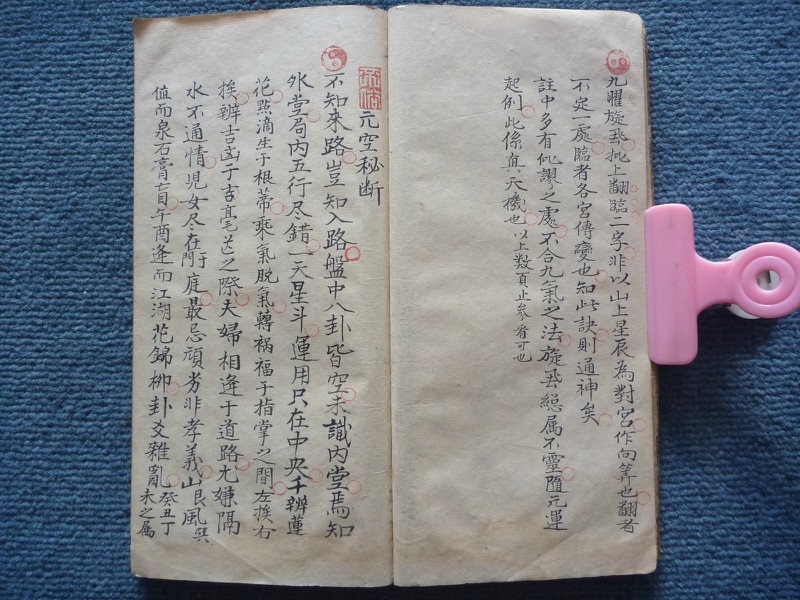 九曜旋飛挨上翻臨二字非以山上星辰為對宮作向筭也翻者
不定一處臨者各宮傳變也知此訣則通神矣
註中多有訛謬之處不合九氣之法旋飛總属不靈隨元運
起例此係真天機也以上数頁止參看可也
元空秘断
不知來路豈知入路盤中八卦皆空未識内堂焉知
外堂局内五行尽錯一天星斗運用只在中央千辦蓮
花點滴生于根蒂乘氣脱氣轉禍福于指掌之間左挨右
挨辨吉凶于吉毫芒之際夫婦相逢于道路尤嫌隔
水不通情児女尽在于門庭最忌頑劣非孝義山艮風巽
值而泉石膏盲午酉逢而江湖花錦柳卦爻雜亂癸丑丁
未之属